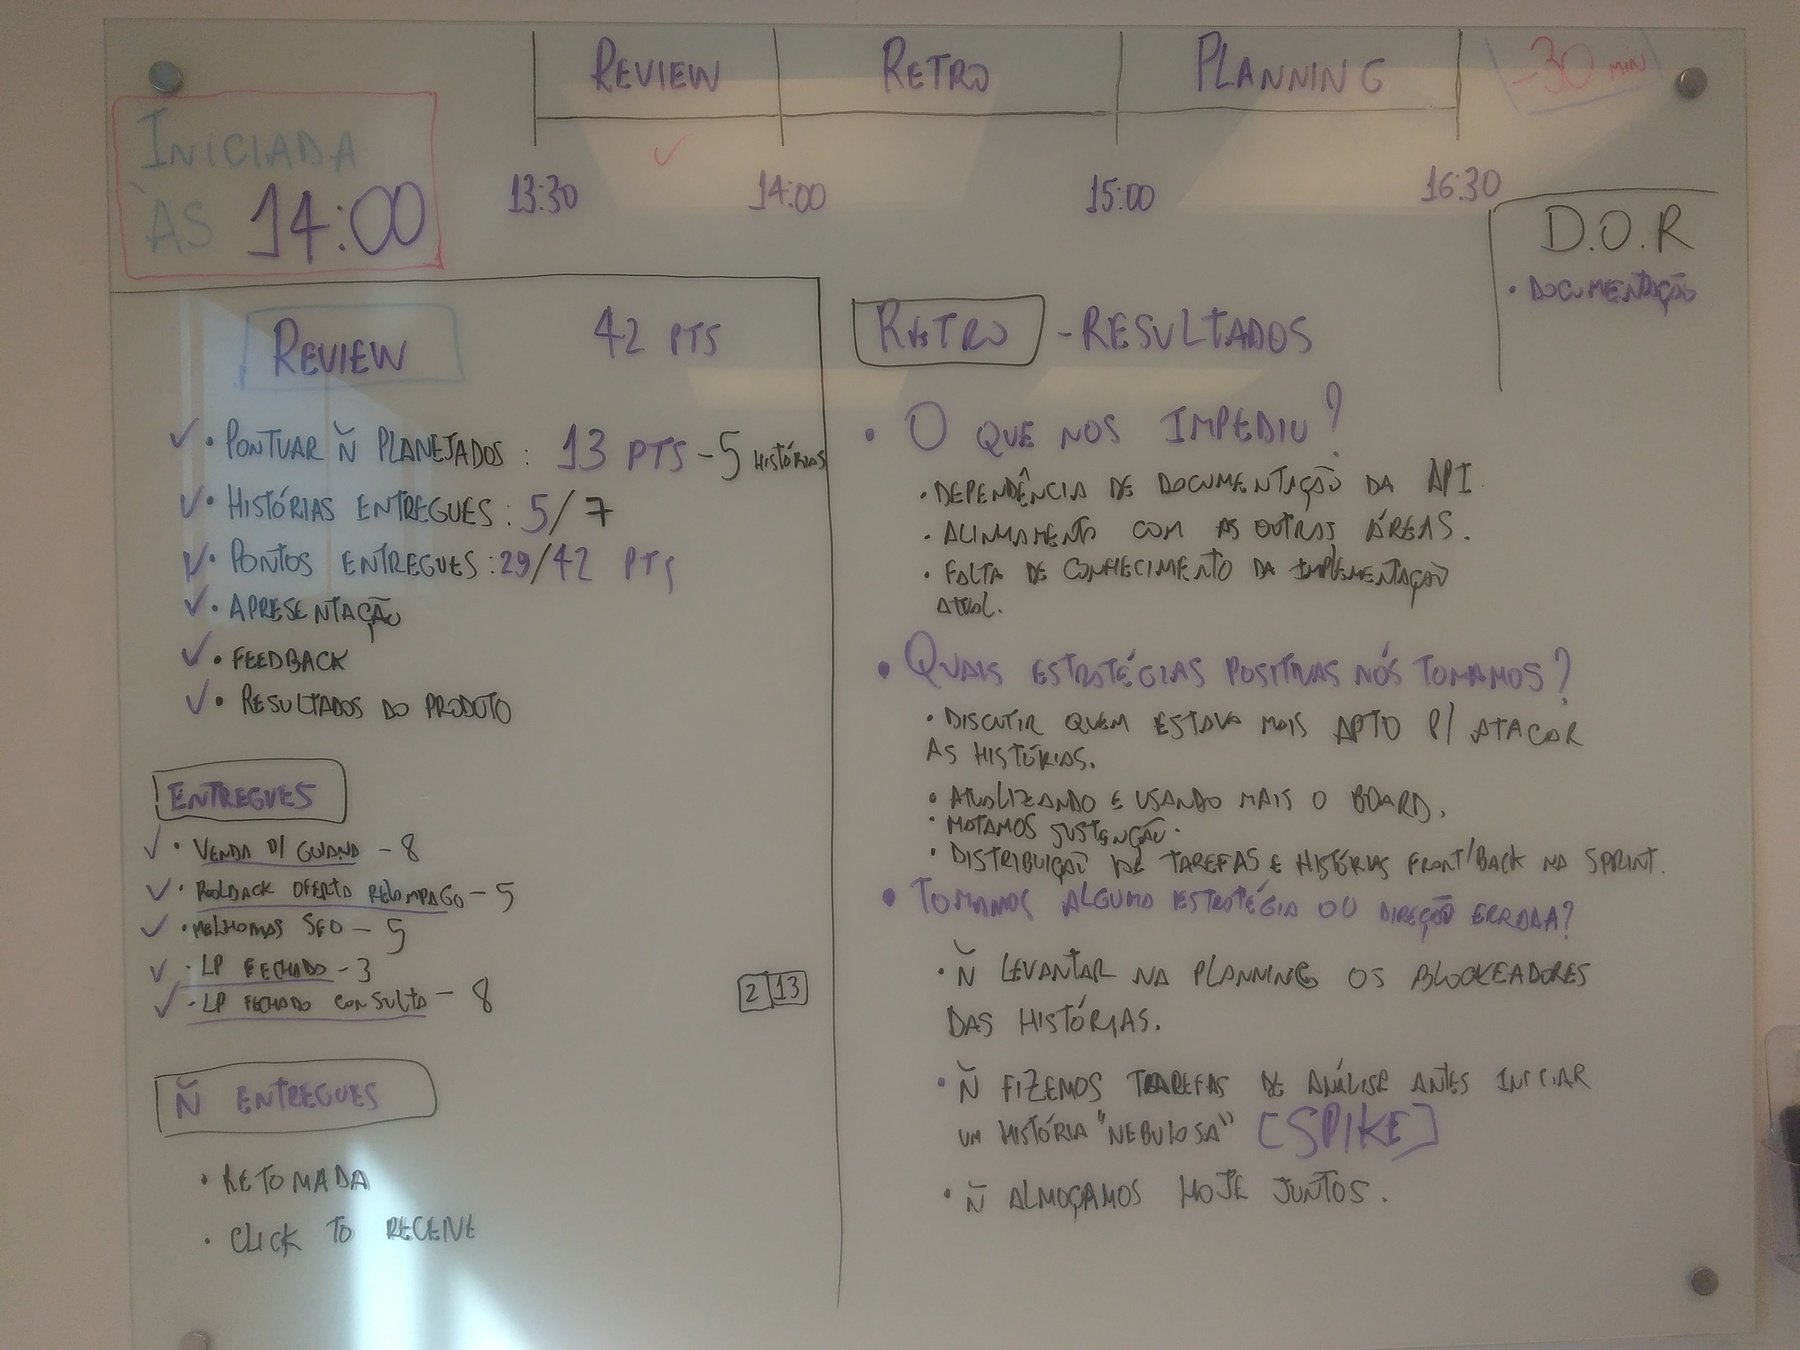 REVIEW
RETRO
PLANNING
-30 MIN
INICIADA
ÀS 14:00
13:30
14:00
15:00
16:30
D.O.R
• DOCUMENTAÇÃO
REVIEW
42 PTS
• PONTUAR Ñ PLANEJADOS: 13 PTS - 5 HISTÓRIAS
• HISTÓRIAS ENTREGUES: 5/7
• PONTOS ENTREGUES: 29/42 PTS
• APRESENTAÇÃO
• FEEDBACK
• RESULTADOS DO PRODUTO
ENTREGUES
• VENDA P/ GUIANA - 8
• ROLLBACK OFERTA RELÂMPAGO - 5
• MELHORIAS SEO - 5
• LP FECHADO - 3
• LP FECHADO CONSULTA - 8
2 13
Ñ ENTREGUES
• RETOMADA
• CLICK TO RECEIVE
RETRO - RESULTADOS
• O QUE NOS IMPEDIU?
• DEPENDÊNCIA DE DOCUMENTAÇÃO DA API
• ALINHAMENTO COM AS OUTRAS ÁREAS.
• FALTA DE CONHECIMENTO DA IMPLEMENTAÇÃO
ATUAL.
• QUAIS ESTRATÉGIAS POSITIVAS NÓS TOMAMOS?
• DISCUTIR QUEM ESTAVA MAIS APTO P/ ATACAR
AS HISTÓRIAS.
• ATUALIZANDO E USANDO MAIS O BOARD.
• MATAMOS SUSTENÇÃO.
• DISTRIBUIÇÃO DE TAREFAS E HISTÓRIAS FRONT/BACK NA SPRINT.
• TOMAMOS ALGUMA ESTRATÉGIA OU DIREÇÃO ERRADA?
• Ñ LEVANTAR NA PLANNING OS BLOCKEADORES
DAS HISTÓRIAS.
• Ñ FIZEMOS TAREFAS DE ANÁLISE ANTES INICIAR
UM HISTÓRIA "NEBULOSA" [SPIKE]
• Ñ ALMOÇAMOS HOJE JUNTOS.